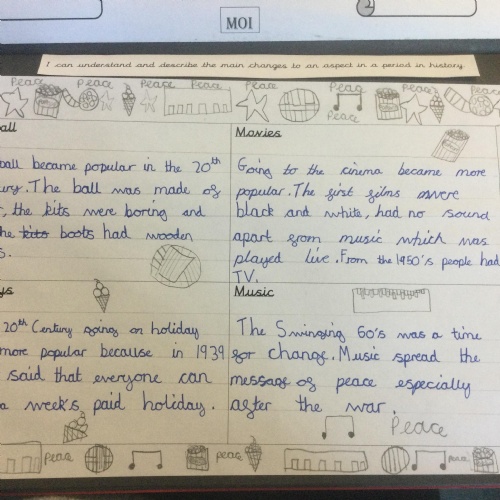 MOI
I can understand and describe the main changes to an aspect in a period in history.
Peace Peace Peace Peace Peace Peace Peace
Peace
all
ball became popular in the 20th
ury. The ball was made of
r, the kits were boring and
he kits boots had wooden
s.
Movies
Going to the cinema became more
popular. The first films were
black and white, had no sound
apart from music which was
played live. From the 1950's people had
TV.
ys
20th Century going on holiday
more popular because in 1939
said that everyone can
a week's paid holiday.
Music
The Swinging 60's was a time
for change. Music spread the
message of peace especially
after the war.
Peace
peace peace peace